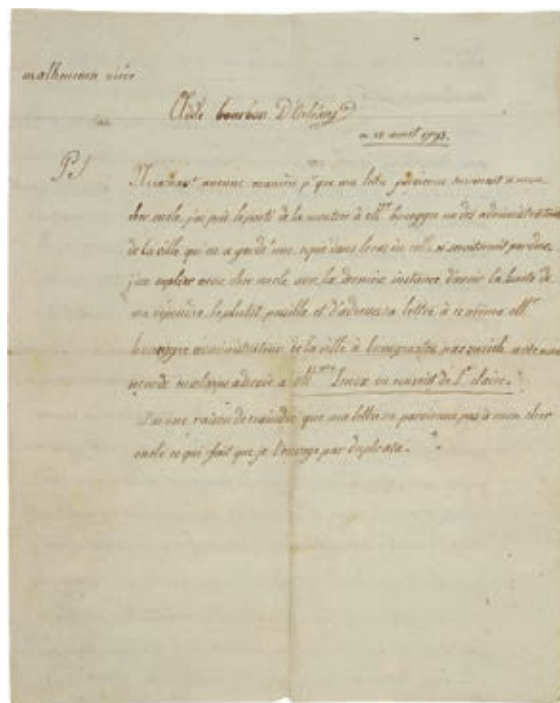 malheureuse nièce
Adèle bourbon D'Orléans
ce 12 avril 1793.
PS
aucune manière pr que ma lettre parvienne surement à mon
cher oncle, j'ai pris le parti de la montrer à Mr bourgogne un des administrateurs
de la ville qui en a gardé une copie dans le cas où celle ci seroit perdue,
mon cher oncle avec la dernière instance d'avoir la bonté de
me répondre le plutôt possible et d'adresser sa lettre à ce même Mr
bourgogne administrateur de la ville à
adressée à Lenox au couvent de Ste claire.
J'ai une raison de craindre que ma lettre ne parvienne pas à mon cher
oncle ce qui fait que je l'envoye par duplicata.